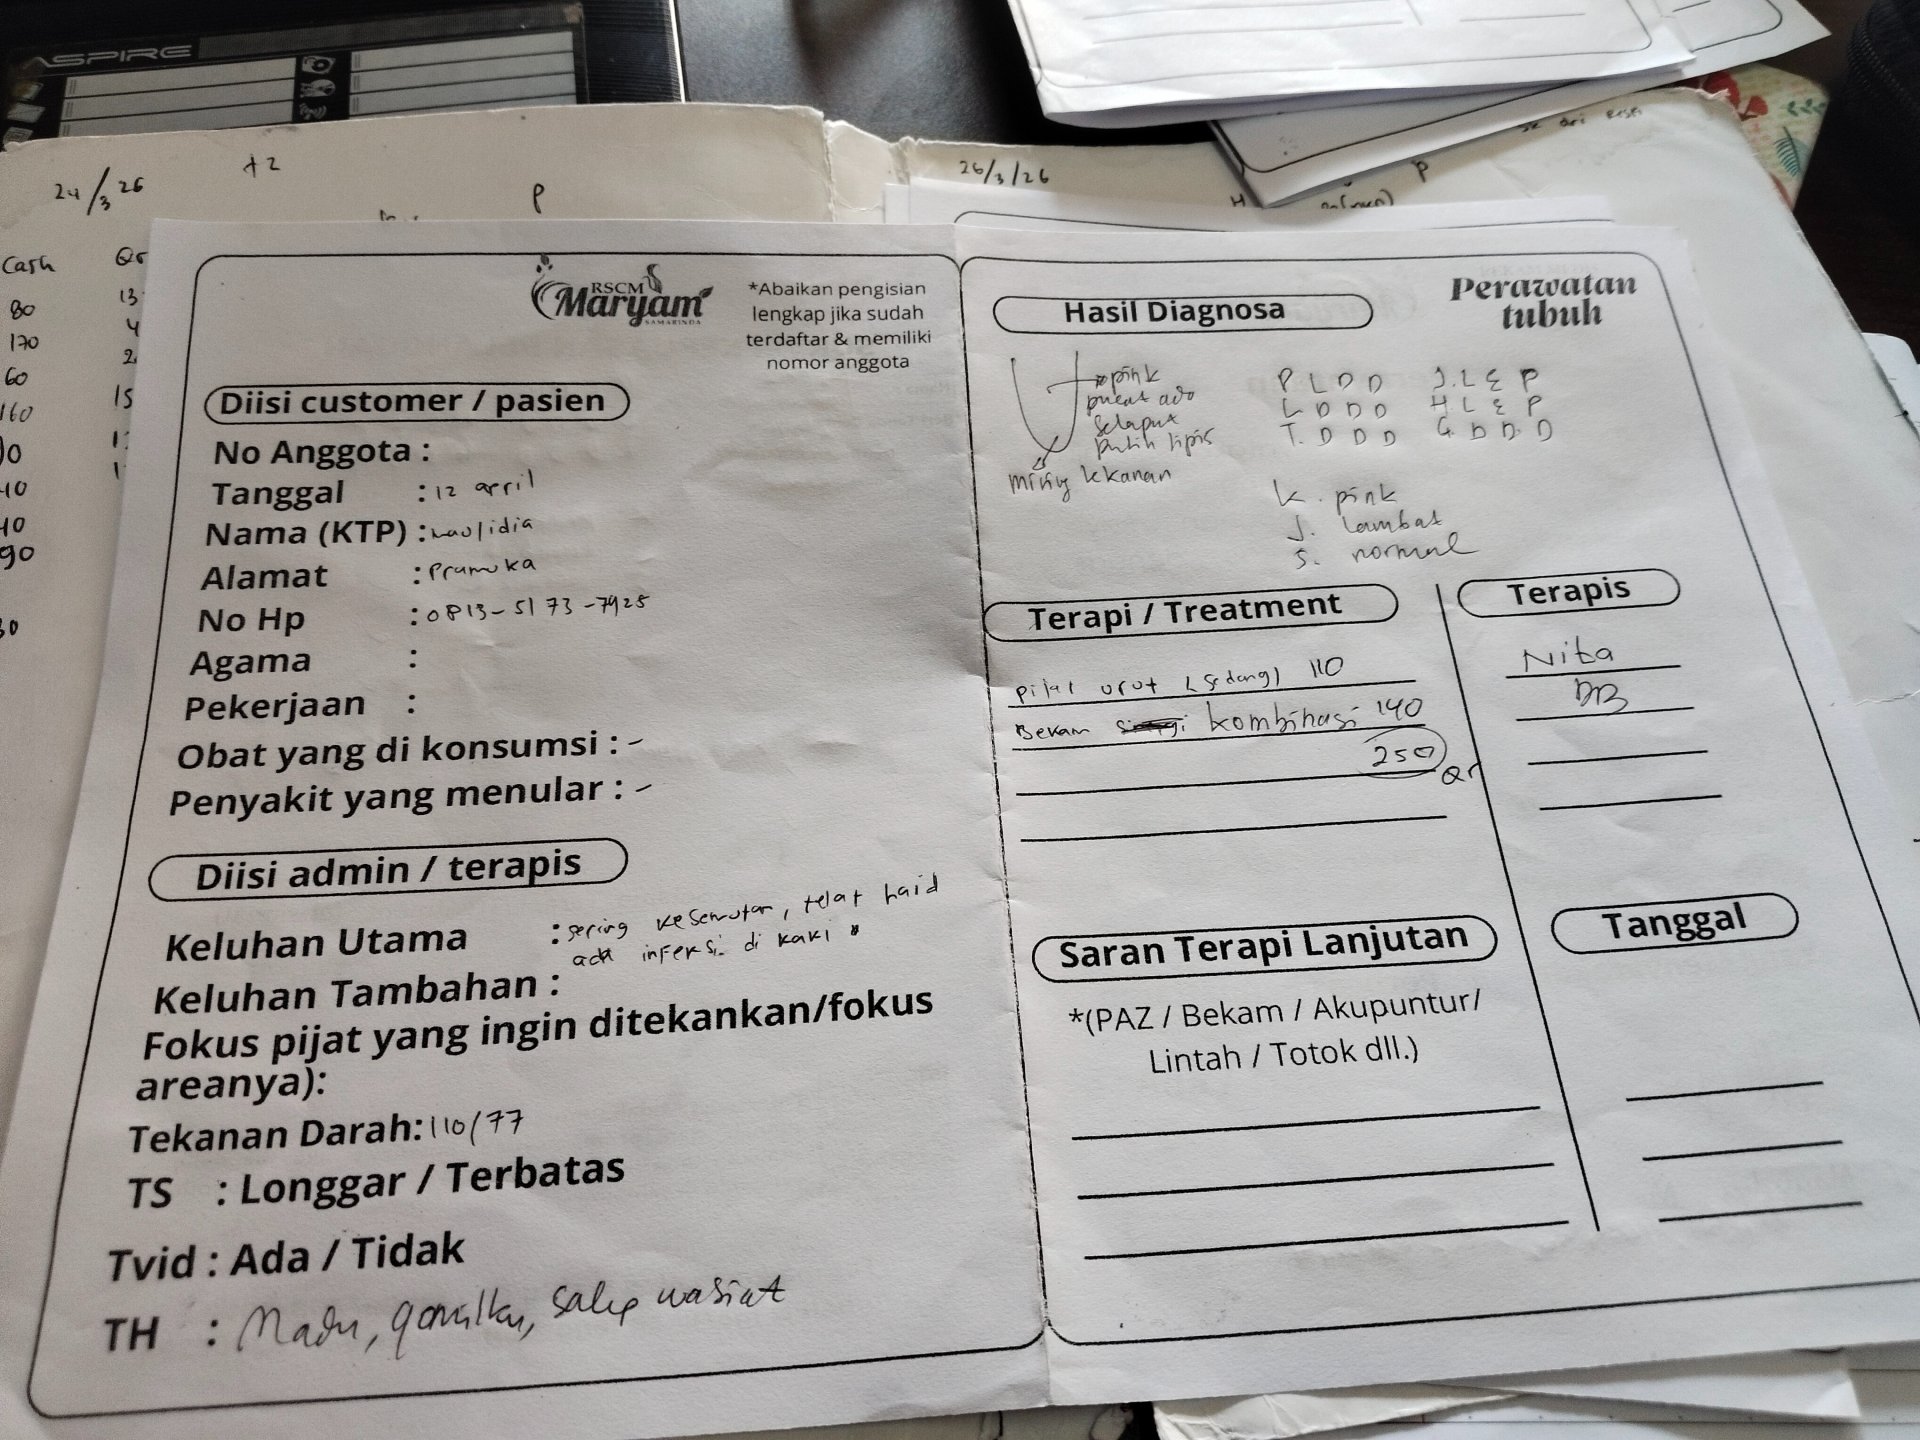 ASPIRE
24/3 26
+2
P
Cash
Qr
80
170
60
160
13
4
2
15
40
90
26/3/26
H
P
RSCM
Maryam
SAMARINDA
*Abaikan pengisian
lengkap jika sudah
terdaftar & memiliki
nomor anggota
Diisi customer / pasien
No Anggota :
Tanggal : 12 april
Nama (KTP) : maulidia
Alamat : Pramuka
No Hp : 0813-5173-7925
Agama :
Pekerjaan :
Obat yang di konsumsi : -
Penyakit yang menular : -
Diisi admin / terapis
Keluhan Utama : sering kesemutan, telat haid
ada infeksi di kaki
Keluhan Tambahan :
Fokus pijat yang ingin ditekankan/fokus
areanya):
Tekanan Darah: 110/77
TS : Longgar / Terbatas
Tvid : Ada / Tidak
TH : Madu, qomilku, salep wasiat
Hasil Diagnosa
Perawatan
tubuh
pink
pucat
Selaput
putih tipis
miring kekanan
P L D D J. L E P
L D D D H L E P
T. D D D G. D D. D
K. pink
J. lambat
S. normal
Terapi / Treatment
Terapis
pijat urut (sedang) 110
Nita
Bekam kombinasi 140
250
Qr
Saran Terapi Lanjutan
Tanggal
*(PAZ / Bekam / Akupuntur/
Lintah / Totok dll.)